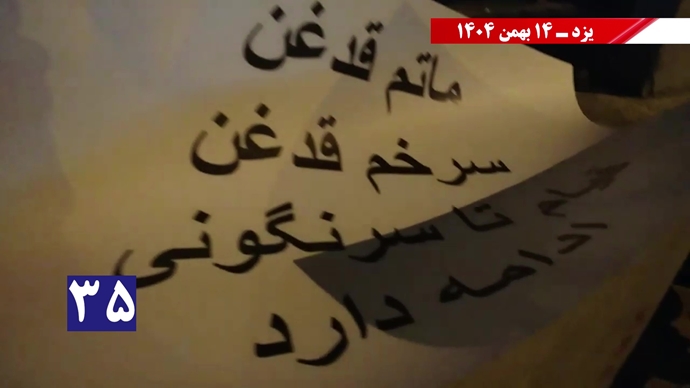 یزد ـ ۱۴ بهمن ۱۴۰۴
ماتم قدغن
سر خم قدغن
تا سرنگونی
ادامه دارد
۳۵